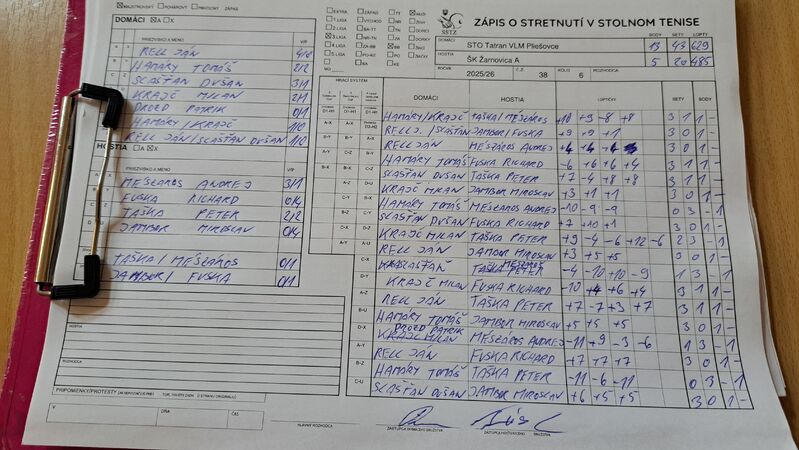 MAJSTROVSKÝ POHÁROVÝ PRIATEĽSKÝ ZÁPAS
DOMÁCI A X
PRIEZVISKO A MENO V/P
RELL JÁN 4/0
HAMÁRY TOMÁŠ 2/2
SLASŤAN DUŠAN 3/1
KRAJČ MILAN 2/1
DROZD PATRIK 0/1
HAMÁRY / KRAJČ 1/0
RELL JÁN / SLASŤAN DUŠAN 1/0
HOSTIA A X
PRIEZVISKO A MENO V/P
MÉSZÁROS ANDREJ 3/1
FUSKA RICHARD 0/4
TAŠKA PETER 2/2
JAMBOR MIROSLAV 0/4
TAŠKA / MÉSZÁROS 0/1
JAMBOR / FUSKA 0/1
DOMÁCI
HOSTIA
PRIPOMIENKY/PROTESTY
V DŇA ČAS
SSTZ
ZÁPIS O STRETNUTÍ V STOLNOM TENISE
DOMÁCI BODY SETY LOPTY
STO Tatran VLM Pliešovce 13 43 629
HOSTIA
ŠK Žarnovica A 5 20 485
ROČNÍK 2025/26 Č.Z. 38 KOLO 6 ROZHODCA
HRACÍ SYSTÉM DOMÁCI HOSTIA LOPTIČKY SETY BODY
HAMÁRY/KRAJČ TAŠKA/MÉSZÁROS +10 +9 -8 +8 3 1 1 -
RELL J./SLASŤAN JAMBOR/FUSKA +9 +9 +1 3 0 1 -
RELL JÁN MÉSZÁROS ANDREJ 3 1 1 -
HAMÁRY TOMÁŠ FUSKA RICHARD -6 +6 +6 +4 3 1 1 -
SLASŤAN DUŠAN TAŠKA PETER +7 -4 +8 +8 3 1 1 -
KRAJČ MILAN JAMBOR MIROSLAV +3 +1 +1 3 0 1 -
HAMÁRY TOMÁŠ MÉSZÁROS ANDREJ -10 -9 -9 0 3 - 1
SLASŤAN DUŠAN FUSKA RICHARD +7 +10 +1 3 0 1 -
KRAJČ MILAN TAŠKA PETER +9 -4 -6 +12 -6 2 3 - 1
RELL JÁN JAMBOR MIROSLAV +3 +5 +5 3 0 1 -
SLASŤAN MÉSZÁROS -4 -10 +10 -9 1 3 - 1
KRAJČ MILAN FUSKA RICHARD -10 +4 +6 +4 3 1 1 -
RELL JÁN TAŠKA PETER +7 -7 +3 +7 3 1 1 -
HAMÁRY TOMÁŠ JAMBOR MIROSLAV +5 +5 +5 3 0 1 -
DROZD PATRIK
KRAJČ MILAN MÉSZÁROS ANDREJ -11 +9 -3 -6 1 3 - 1
RELL JÁN FUSKA RICHARD +7 +7 +7 3 0 1 -
HAMÁRY TOMÁŠ TAŠKA PETER -11 -6 -11 0 3 - 1
SLASŤAN DUŠAN JAMBOR MIROSLAV +6 +5 +5 3 0 1 -
HLAVNÝ ROZHODCA ZÁSTUPCA DOMÁCEHO DRUŽSTVA ZÁSTUPCA HOSŤUJÚCEHO DRUŽSTVA